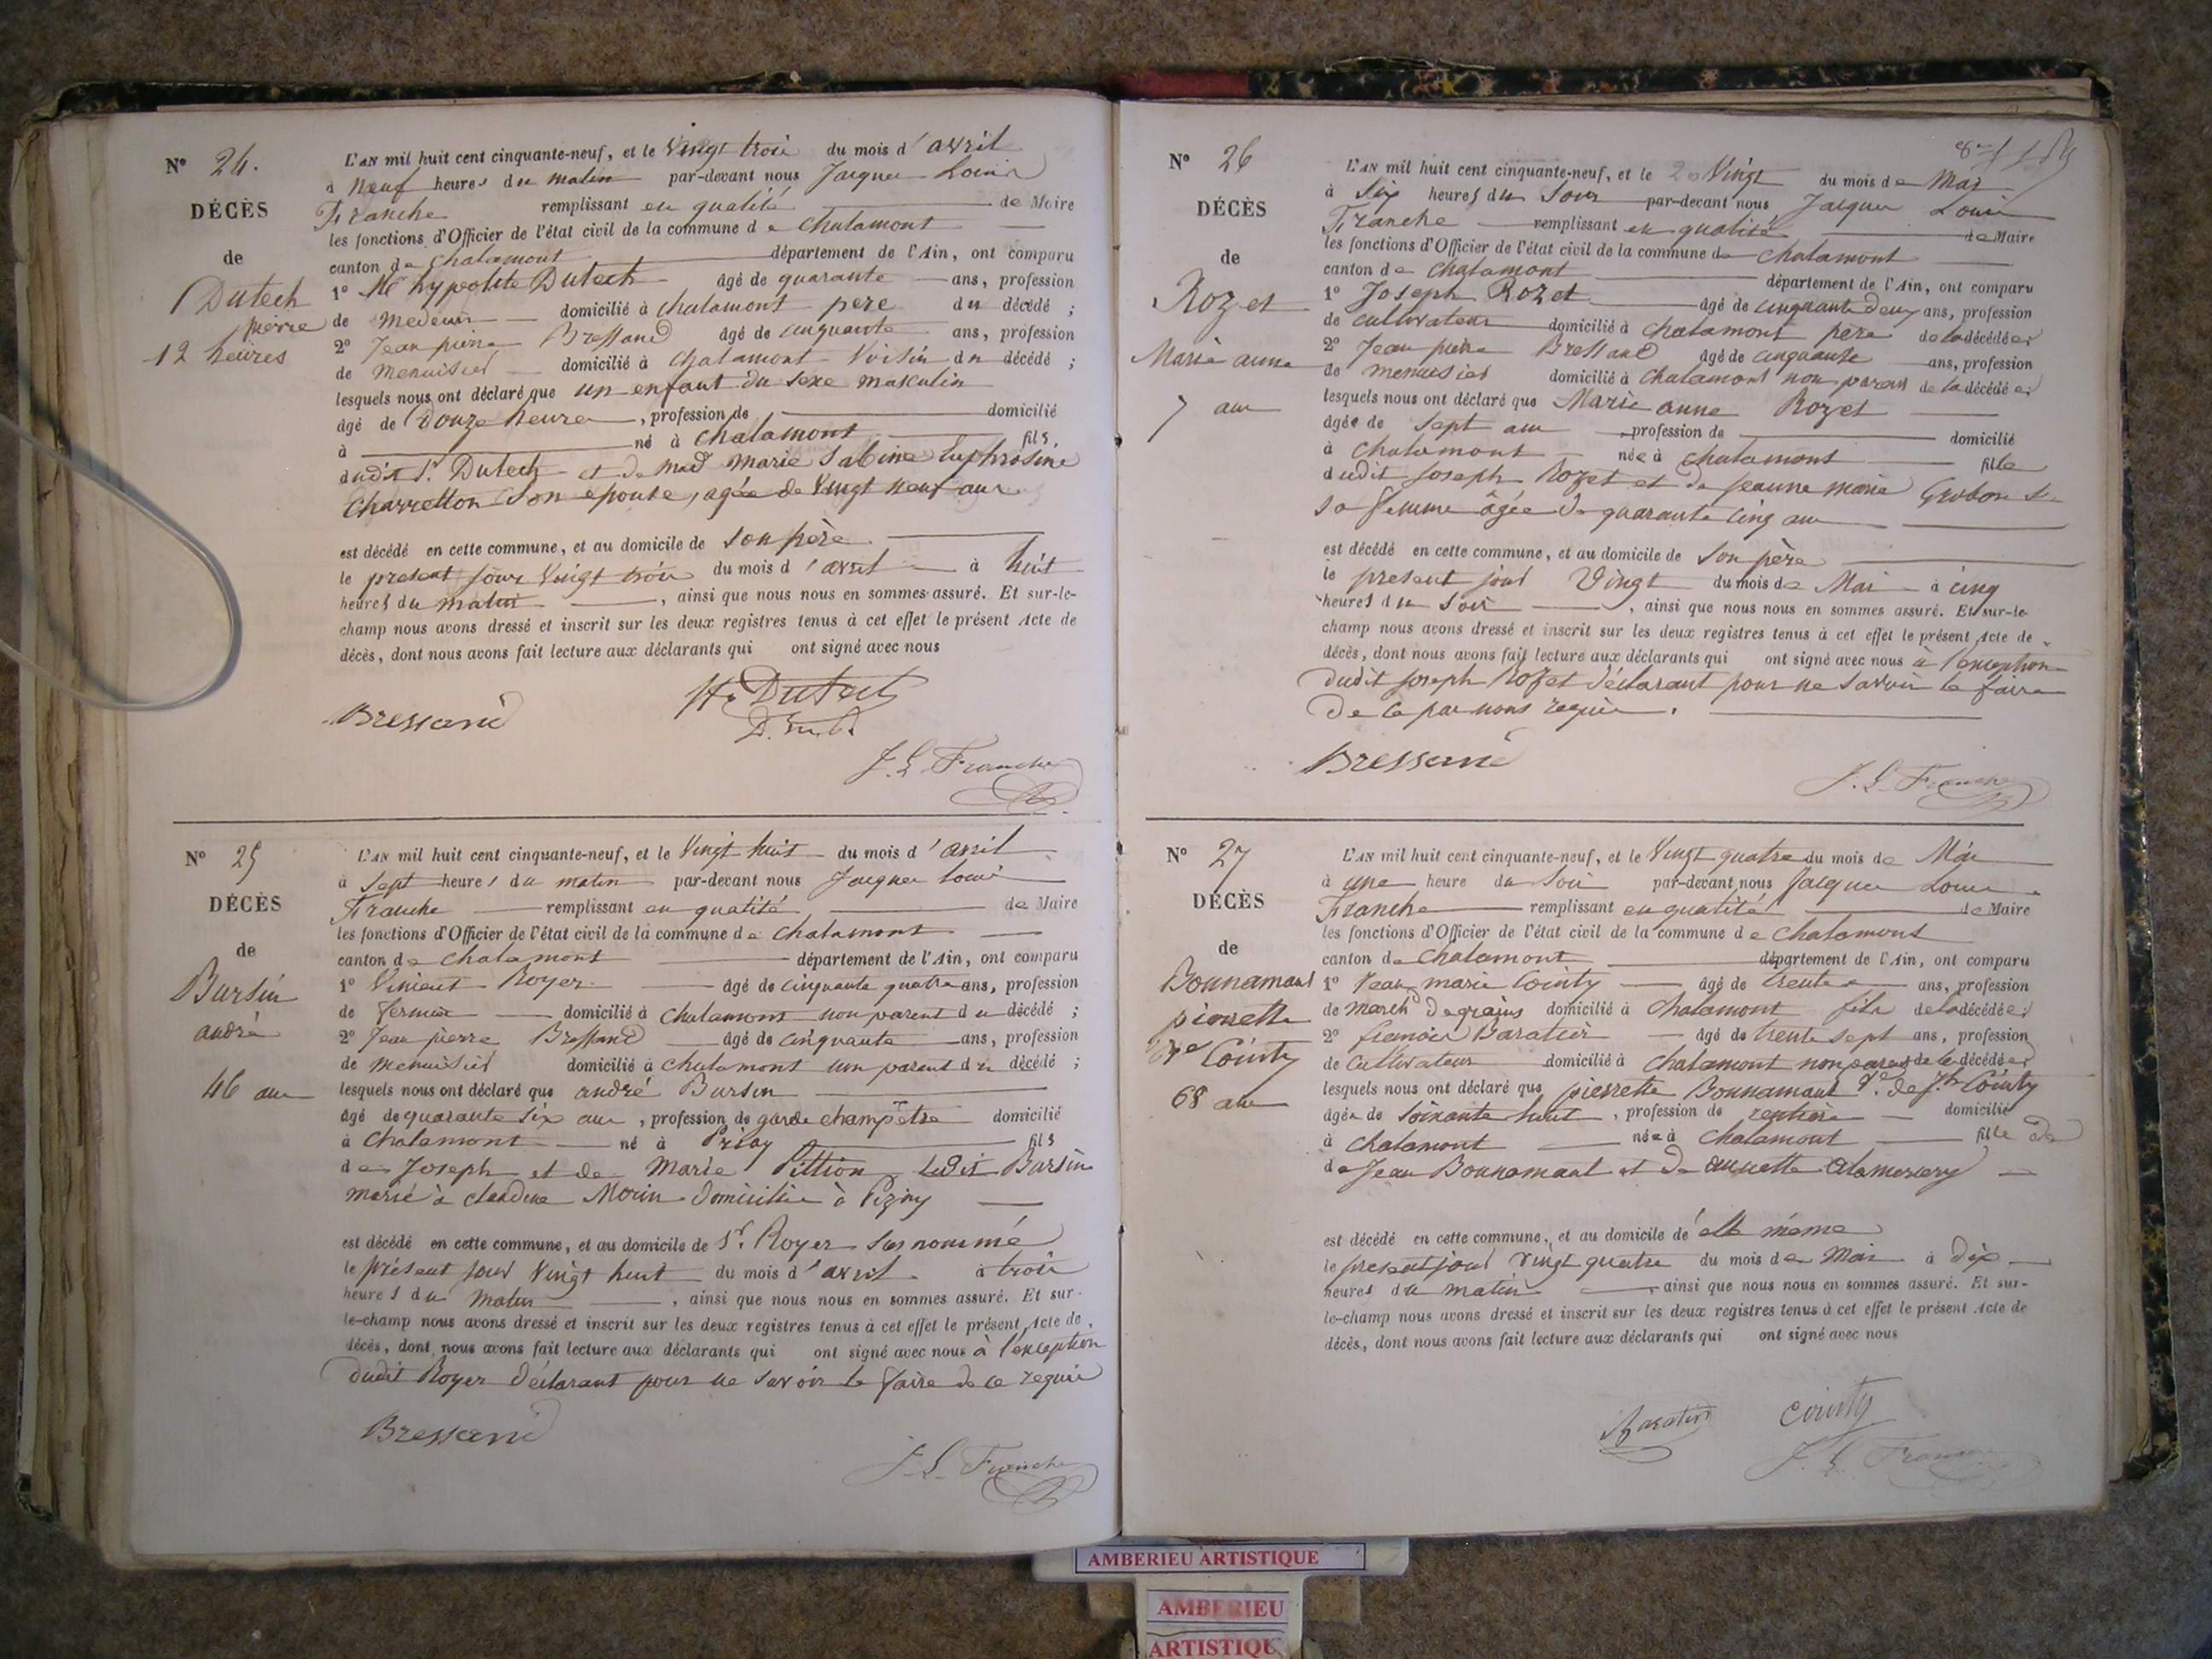 N° 24.
DÉCÈS
de
Dutech
pierre
12 heures
L'AN mil huit cent cinquante-neuf, et le Vingt trois du mois d'avril
à neuf heures du matin par-devant nous Jacques Louis
Franche remplissant en qualité de Maire
les fonctions d'Officier de l'état civil de la commune de Chalamont
canton de Chalamont département de l'Ain, ont comparu
1° Mr hypolite Dutech âgé de quarante ans, profession
de Medecin domicilié à Chalamont pere du décédé ;
2° Jean pierre Bressand âgé de cinquante ans, profession
de Menuisier domicilié à Chalamont Voisin du décédé ;
lesquels nous ont déclaré que un enfant du sexe masculin
âgé de Douze heures, profession de domicilié
à né à Chalamont fils
dudit Sr. Dutech et de mad marie Sabine Euphrosine
Charretton Son epouse, agée de Vingt neuf ans
est décédé en cette commune, et au domicile de Son père
le present jour Vingt trois du mois d'avril à huit
heures du matin, ainsi que nous nous en sommes assuré. Et sur-le-
champ nous avons dressé et inscrit sur les deux registres tenus à cet effet le présent Acte de
décès, dont nous avons fait lecture aux déclarants qui ont signé avec nous
Bressand
H. Dutech
J. L. Franche
N° 25
DÉCÈS
de
Bursin
andré
46 ans
L'AN mil huit cent cinquante-neuf, et le Vingt huit du mois d'avril
à Sept heures du matin par-devant nous Jacques Louis
Franche remplissant en qualité de Maire
les fonctions d'Officier de l'état civil de la commune de Chalamont
canton de Chalamont département de l'Ain, ont comparu
1° Vincent Royer âgé de cinquante quatre ans, profession
de fermier domicilié à Chalamont non parent du décédé ;
2° Jean pierre Bressand âgé de cinquante ans, profession
de Menuisier domicilié à Chalamont non parent du décédé ;
lesquels nous ont déclaré que andré Bursin
âgé de quarante six ans, profession de garde champêtre domicilié
à Chalamont né à fils
de Joseph et de Marie Pittion Ledit Bursin
marié à claudine Morin domiciliée à
est décédé en cette commune, et au domicile de Sr. Royer Susnommé
le présent jour Vingt huit du mois d'avril à trois
heures du Matin, ainsi que nous nous en sommes assuré. Et sur-
le-champ nous avons dressé et inscrit sur les deux registres tenus à cet effet le présent Acte de
décès, dont nous avons fait lecture aux déclarants qui ont signé avec nous à l'exception
dudit Royer déclarant pour ne savoir le faire de ce requis
Bressand
J. L. Franche
N° 26
DÉCÈS
de
Rozet
Marie anne
7 ans
L'AN mil huit cent cinquante-neuf, et le 20 Vingt du mois de Mai
à Six heures du Soir par-devant nous Jacques Louis
Franche remplissant en qualité de Maire
les fonctions d'Officier de l'état civil de la commune de Chalamont
canton de Chalamont département de l'Ain, ont comparu
1° Joseph Rozet âgé de cinquante deux ans, profession
de cultivateur domicilié à Chalamont père de la décédée ;
2° Jean pierre Bressand âgé de cinquante ans, profession
de menuisier domicilié à Chalamont non parent de la décédée ;
lesquels nous ont déclaré que Marie anne Rozet
âgée de Sept ans profession de domicilié
à Chalamont née à Chalamont fille
dudit Joseph Rozet et de Jeanne marie
sa femme âgée de quarante cinq ans
est décédé en cette commune, et au domicile de Son père
le present jour Vingt du mois de Mai à cinq
heures du Soir, ainsi que nous nous en sommes assuré. Et sur-le-
champ nous avons dressé et inscrit sur les deux registres tenus à cet effet le présent Acte de
décès, dont nous avons fait lecture aux déclarants qui ont signé avec nous à l'exception
dudit Joseph Rozet déclarant pour ne savoir le faire
de ce par nous requis.
Bressand
J. L. Franche
N° 27
DÉCÈS
de
Bonnamant
pierrette
Vve Cointy
68 ans
L'AN mil huit cent cinquante-neuf, et le Vingt quatre du mois de Mai
à une heure du Soir par-devant nous Jacques Louis
Franche remplissant en qualité de Maire
les fonctions d'Officier de l'état civil de la commune de Chalamont
canton de Chalamont département de l'Ain, ont comparu
1° Jean marie Cointy âgé de trente ans, profession
de march de grains domicilié à Chalamont fils de la décédée ;
2° Baratier âgé de trente sept ans, profession
de Cultivateur domicilié à Chalamont non parent de la décédée
lesquels nous ont déclaré que pierrette Bonnamant Ve. de Jh Cointy
âgée de Soixante huit, profession de rentière domicilié
à Chalamont née à Chalamont fille de
de Jean Bonnamant et de annette
est décédé en cette commune, et au domicile de elle même
le present jour Vingt quatre du mois de Mai à dix
heures du matin ainsi que nous nous en sommes assuré. Et sur-
le-champ nous avons dressé et inscrit sur les deux registres tenus à cet effet le présent Acte de
décès, dont nous avons fait lecture aux déclarants qui ont signé avec nous
Baratier
Cointy
J. L. Franche
AMBERIEU ARTISTIQUE
AMBERIEU
ARTISTIQUE